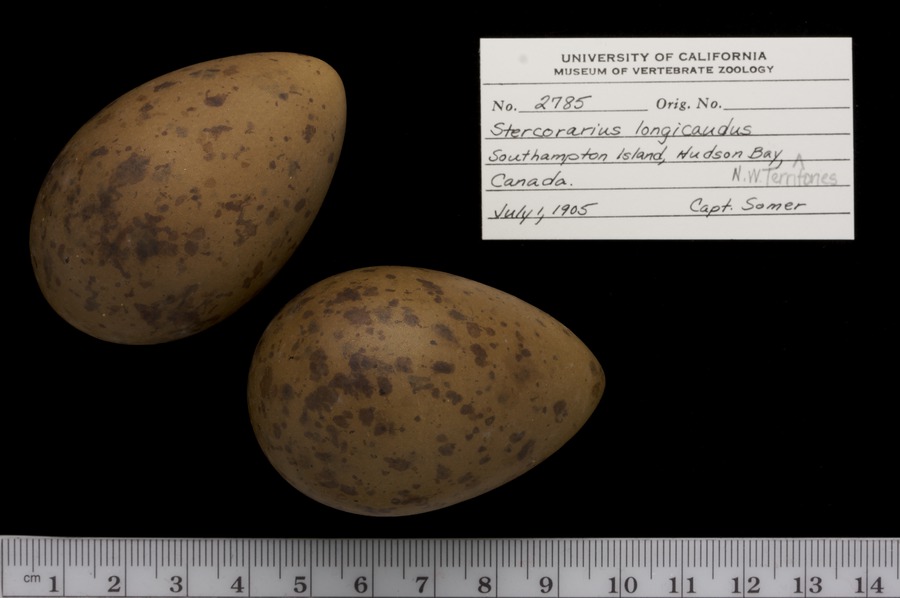 UNIVERSITY OF CALIFORNIA
MUSEUM OF VERTEBRATE ZOOLOGY
No. 2785 Orig. No.
Stercorarius longicaudus
Southampton Island, Hudson Bay,
N.W. Territories
Canada.
July 1, 1905 Capt. Somer
cm 1 2 3 4 5 6 7 8 9 10 11 12 13 14